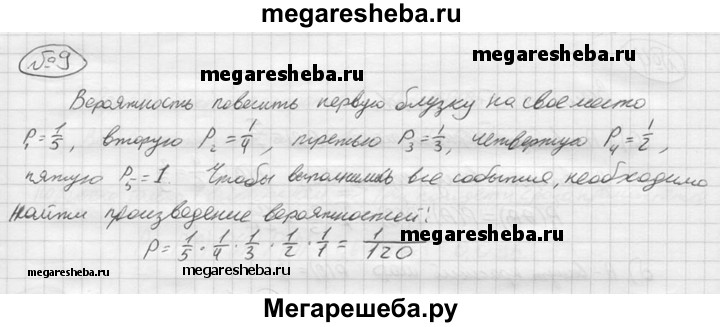 megaresheba.ru
№9
megaresheba.ru
Вероятность повесить первую блузку на свое место
P₁=1/5, вторую P₂=1/4, третью P₃=1/3, четвертую P₄=1/2,
пятую P₅=1. Чтобы выполнились все события, необходимо
найти произведение вероятностей:
megaresheba.ru
P=1/5·1/4·1/3·1/2·1/1=1/120
megaresheba.ru
megaresheba.ru
Мегарешеба.ру